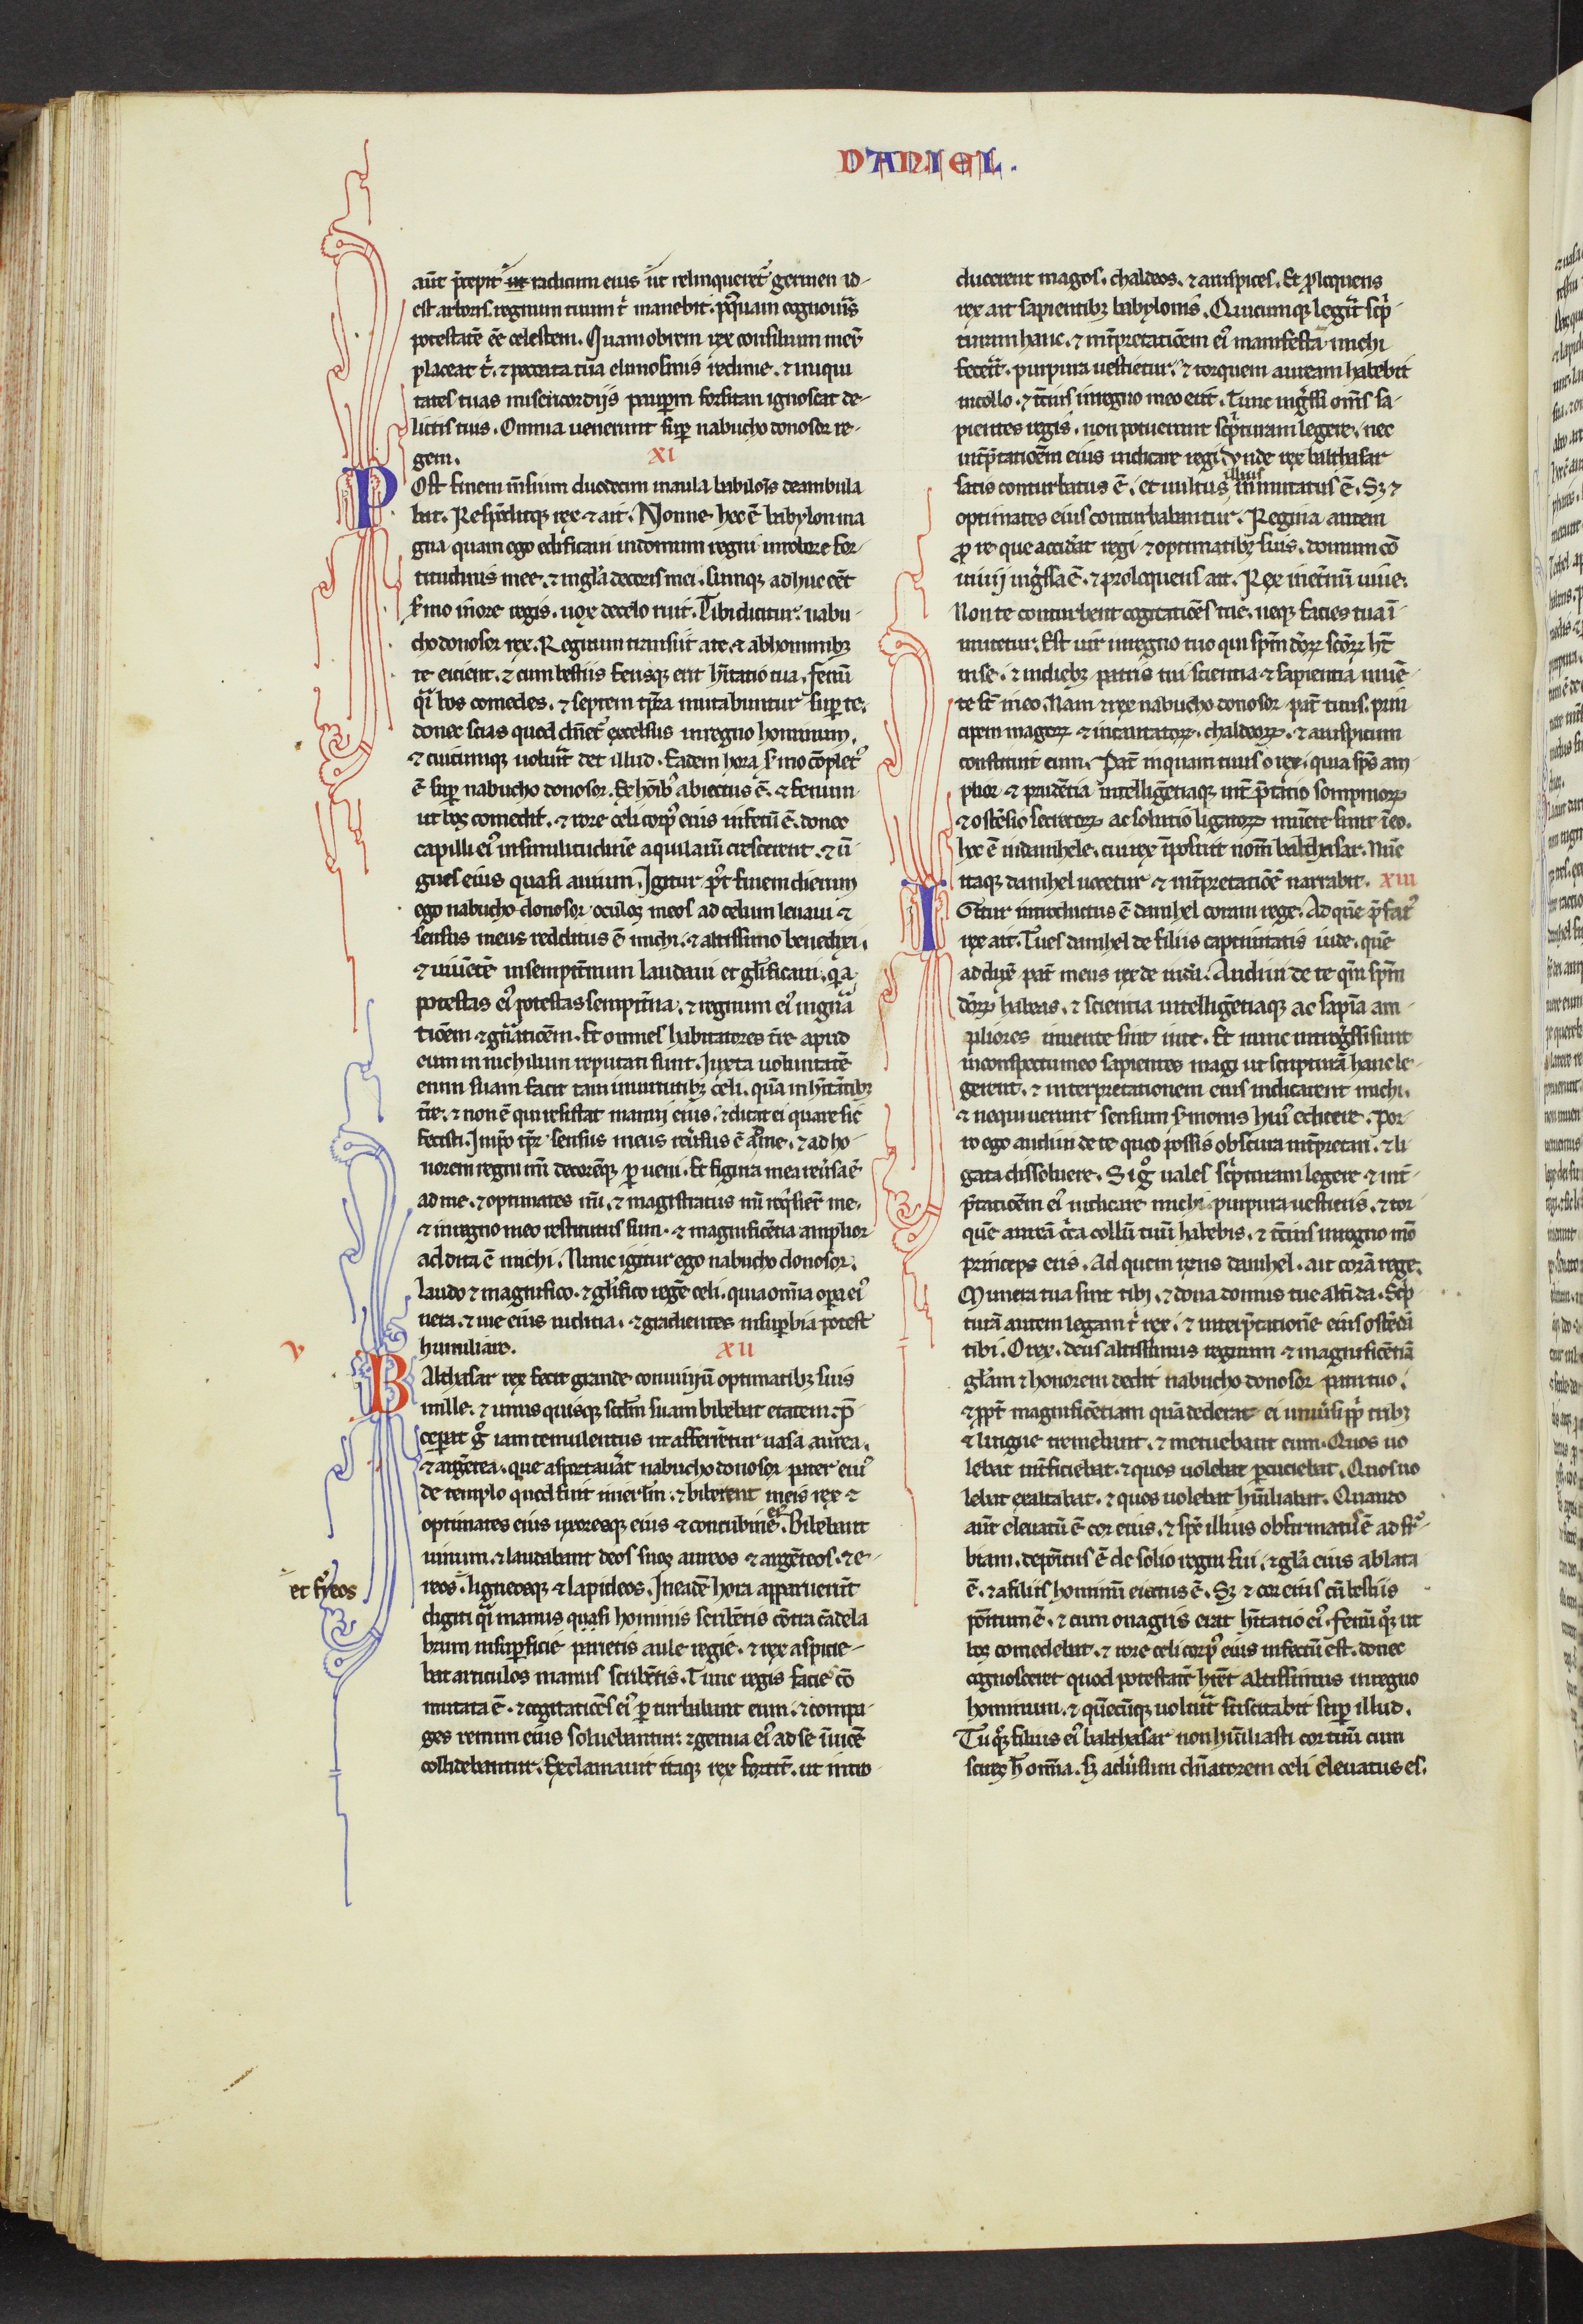 DANIEL.
aut̄ p̄cepit ut radicum eius ut relinqueret᷑ germen id
est arboris. regnum tuum t̓ manebit. p᷒tquam cognou̓is
potestatē eē celestem. Quamobrem rex consilium meū
placeat t̓. ⁊ peccata tua elimosinis redime. ⁊ iniqui
tates tuas misericordiis pauꝑum forsitan ignoscat de-
lictis tuis. Omnia uenerunt suꝑ nabuchodonosor re-
gem. XI
POst finem m̄sium duodecim in aula babilon̄is deambula
bat. Respōditq; rex ⁊ ait. Nonne hec ē babylon ma
gna quam ego edificaui in domum regni in robore for-
titudinis mee. ⁊ in gl̄a decoris mei. Cumq; adhuc eēt
s̓mo in ore regis. uox de celo ruit. Tibi dicitur. nabu-
chodonosor rex. Regnum transiit a te. ⁊ ab hominibꝫ
te eicient. ⁊ cum bestiis ferisq; erit h̄itatio tua. fenū
q̄i bos comedes. ⁊ septem tp̄ra mutabuntur suꝑ te.
donec scias quod dn̄et᷑ excelsus in regno hominum.
⁊ cuicumq; uolu̓it det illud. Eadem hora s̓mo cōplet᷒
ē suꝑ nabuchodonosor. Ex hoīb᷒ abiectus ē. ⁊ fenum
ut bos comedit. ⁊ rore celi corp᷒ eius infectū ē. donec
capilli ei᷒ in similitudinē aquilarū crescerent. ⁊ ū-
gues eius quasi auium. Igitur p᷒t finem dierum
ego nabuchodonosor oculos meos ad celum leuaui ⁊
sensus meus redditus ē michi. ⁊ altissimo benedixi.
⁊ uiuētē in sempit̄num laudaui et gl̄ificaui. q̄a
potestas ei᷒ potestas sempit̄na. ⁊ regnum ei᷒ in gn̄a
tiōem ⁊ gn̄atiōem. Et omnes habitatores t̄re apud
eum in nichilum reputati sunt. Iuxta uoluntatē
enim suam facit tam in uirtutibꝫ celi. quā in h̄itātibꝫ
t̄re. ⁊ non ē qui resistat manui eius. ⁊ dicat ei quare sic
fecisti. In ip̄o tp̄r sensus meus reu̓sus ē ad me. ⁊ ad ho-
norem regni mei decorēq; ꝑueni. Et figura mea reu̓sa ē
ad me. ⁊ optimates mei. ⁊ magistratus mei req̓sier̄ me.
⁊ in regno meo restitutus sum. ⁊ magnificētia amplior
addita ē michi. Nunc igitur ego nabuchodonosor.
laudo ⁊ magnifico. ⁊ gl̄ifico regē celi. quia om̄ia oꝑa ei᷒
uera. ⁊ uie eius iudicia. ⁊ gradientes in suꝑbia potest
humiliare. XII
V
BAlthasar rex fecit grande conuiuiū optimatibꝫ suis
mille. ⁊ unusquisque scd̄m suam bibebat etatem. p̄-
ceꝑat g᷒ iam temulentus ut afferrētur uasa aurea.
⁊ argētea. que asportau̓at nabuchodonosor pater eiu᷒
de templo quod fuit in ierl̄m. ⁊ biberent in eis rex ⁊
optimates eius uxoresq; eius ⁊ concubine ei᷒. Bibebant
uinum. ⁊ laudabant deos suos aureos ⁊ argēteos. ⁊ e-
reos. ligneosq; ⁊ lapideos. In eadē hora apparuerūt
et fr̄eos
digiti q̄i manus quasi hominis scribētis cōtra cādela
brum in suꝑficie parietis aule regie. ⁊ rex aspicie-
bat articulos manus scribētis. Tunc regis facie cō
mutata ē. ⁊ cogitatiōes ei᷒ ꝑturbabant eum. ⁊ compa
ges renum eius soluebantur. ⁊ genua ei᷒ ad se īuicē
collidebantur. Exclamauit itaq; rex fortit̄. ut intro-
ducerent magos. chaldeos. ⁊ auruspices. Et ꝓloquens
rex ait sapientibꝫ babylonis. Quicumq; leg̓it sc̓p-
turam hanc. ⁊ int̄pretatiōem ei᷒ manifestā michi
fec̓it. purpura uestietur. ⁊ torquem auream habebit
in collo. ⁊ t̄cius in regno meo erit. Tunc ing̓ssi oms̄ sa-
pientes regis. non potuerunt sc̓pturam legere. nec
int̄p̄tatiōem eius indicare regi. Vnde rex balthasar
satis conturbatus ē. et uultus illius inmutatus ē. Sꝫ ⁊
optimates eius conturbabantur. Regina autem
ꝓ re que accid̓at regi ⁊ optimatibꝫ suis. domum cō
uiuii ing̓ssa ē. ⁊ proloquens ait. Rex inet̄nū uiue.
Non te conturbent cogitatiōes tue. neq; facies tua ī-
mutetur. Est uir in regno tuo qui sp̄m dōrꝝ sc̄orꝝ ht̄
in se. ⁊ in diebꝫ patris tui scientia ⁊ sapientia inuē-
te st̄ in eo. Nam ⁊ rex nabuchodonosor pat̄ tuus. prin
cipem magorꝝ ⁊ incantatorꝝ. chaldeorꝝ. ⁊ auruspicum
constituit eum. Pat̄ inquam tuus o rex. quia sp̄s am-
plior ⁊ prudētia intelligētiaq; int̄p̄tatio sompniorꝝ
⁊ ostēsio secretorꝝ ac solutio ligatorꝝ inuēte sunt ī eo.
hoc ē in danihele. cui rex īposuit nom̄ balthasar. Nūc
itaq; danihel uocetur ⁊ int̄pretatiōē narrabit. XIII
IGitur introductus ē danihel coram rege. Ad quē p̄fat᷒
rex ait. Tu es danihel de filiis captiuitatis iude. quē
adduxē pat̄ meus rex de iudā. Audiui de te qm̄ sp̄m
dōrꝝ habeas. ⁊ scientia intelligētiaq; ac sapīa am-
pliores inuente sint in te. Et nunc introg̓ssi sunt
in conspectu meo sapientes magi ut scripturā hanc le-
gerent. ⁊ interpretationem eius indicarent michi.
⁊ nequiuerunt sensum s̓monis hui᷒ edicere. Por-
ro ego audiui de te quod possis obscura int̄pretari. ⁊ li-
gata dissoluere. Si g᷒ uales sc̓pturam legere ⁊ int̄-
p̄tatiōem ei᷒ indicare michi. purpura uestieris. ⁊ tor
quē aureā c̓ca collū tuū habebis. ⁊ t̄cius in regno meo
princeps eris. Ad quem rn̄s danihel. ait corā rege.
Munera tua sint tibi. ⁊ dona domus tue alt̄i da. Sc̓p
turā autem legam t̓ rex. ⁊ interp̄tationē eius ostēdā
tibi. O rex. deus altissimus regnum ⁊ magnificētiā
gl̄am ⁊ honorem dedit nabuchodonosor patri tuo.
⁊ ꝓpt̄ magnificētiam quā dederat ei uniu̓si pp̄li tribꝫ
⁊ lingue tremebant. ⁊ metuebant eum. Quos uo
lebat int̄ficiebat. ⁊ quos uolebat ꝑcuciebat. Quos uo
lebat exaltabat. ⁊ quos uolebat hūiliabat. Quando
aut̄ eleuatū ē cor eius. ⁊ sp̄c illius obfirmatus ē ad suꝑ-
biam. depoītus ē de solio regni sui. ⁊ gl̄a eius ablata
ē. ⁊ a filiis hominū eiectus ē. Sꝫ ⁊ cor eius cū bestiis
poītum ē. ⁊ cum onagris erat h̄itatio ei᷒. fenū q̊ꝫ ut
bos comedebat. ⁊ rore celi corp᷒ eius infectū est. donec
cognosceret quod potestatē h̄ret altissimus in regno
hominum. ⁊ quēcūq; uolu̓it suscitabit suꝑ illud.
Tu q̊ꝫ filius ei᷒ balthasar non hūiliasti cor tuū cum
scires h̄ om̄ia. sꝫ adu̓sum dn̄atorem celi eleuatus es.